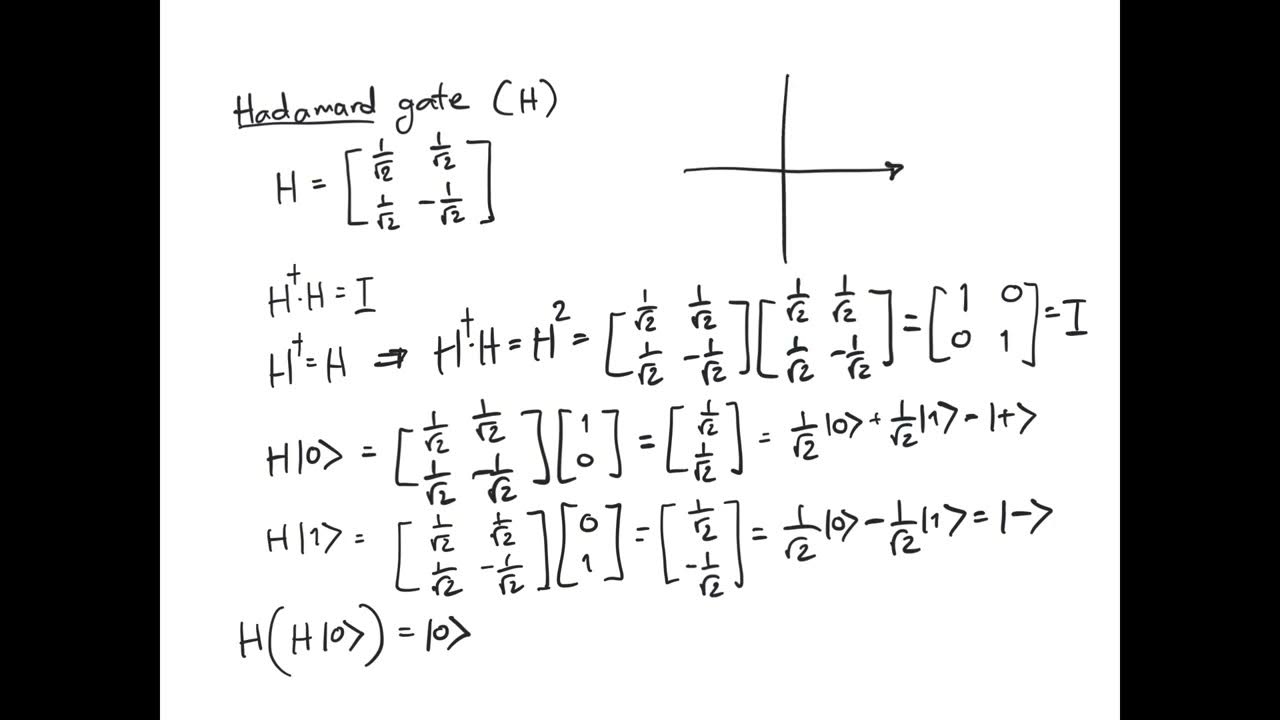 Hadamard gate (H)
H = [1/√2 1/√2; 1/√2 -1/√2]
H†·H = I
H† = H ⇒ H†·H = H² = [1/√2 1/√2; 1/√2 -1/√2][1/√2 1/√2; 1/√2 -1/√2] = [1 0; 0 1] = I
H|0> = [1/√2 1/√2; 1/√2 -1/√2][1; 0] = [1/√2; 1/√2] = 1/√2|0> + 1/√2|1> - |+>
H|1> = [1/√2 1/√2; 1/√2 -1/√2][0; 1] = [1/√2; -1/√2] = 1/√2|0> - 1/√2|1> = |->
H(H|0>) = |0>